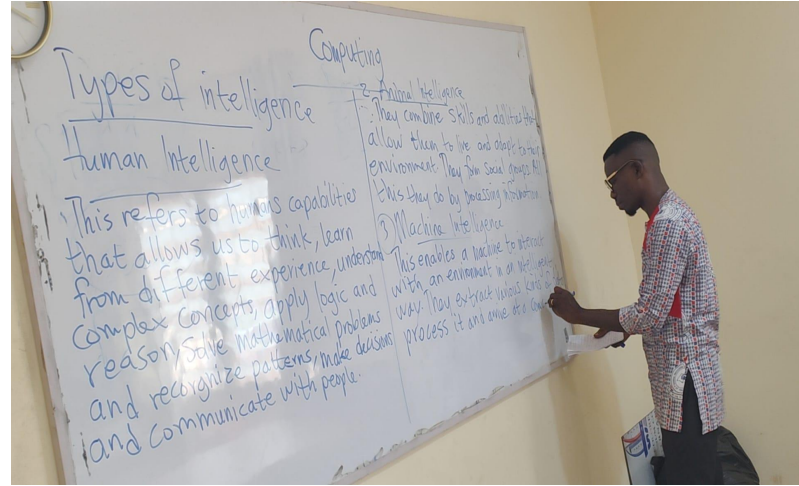 Computing
Types of intelligence
Human Intelligence
This refers to humans capabilities
that allows us to think, learn
from different experience, understand
complex concepts, apply logic and
reason, solve mathematical problems
and recorgnize patterns, make decisions
and communicate with people.
2. Animal Intelligence
They combine skills and abilities that
allow them to live and adapt to their
environment. They form social groups. All
this they do by processing information.
③ Machine Intelligence
This enables a machine to interact
with an environment in an intelligent
way. They extract various
process it and arrive at a